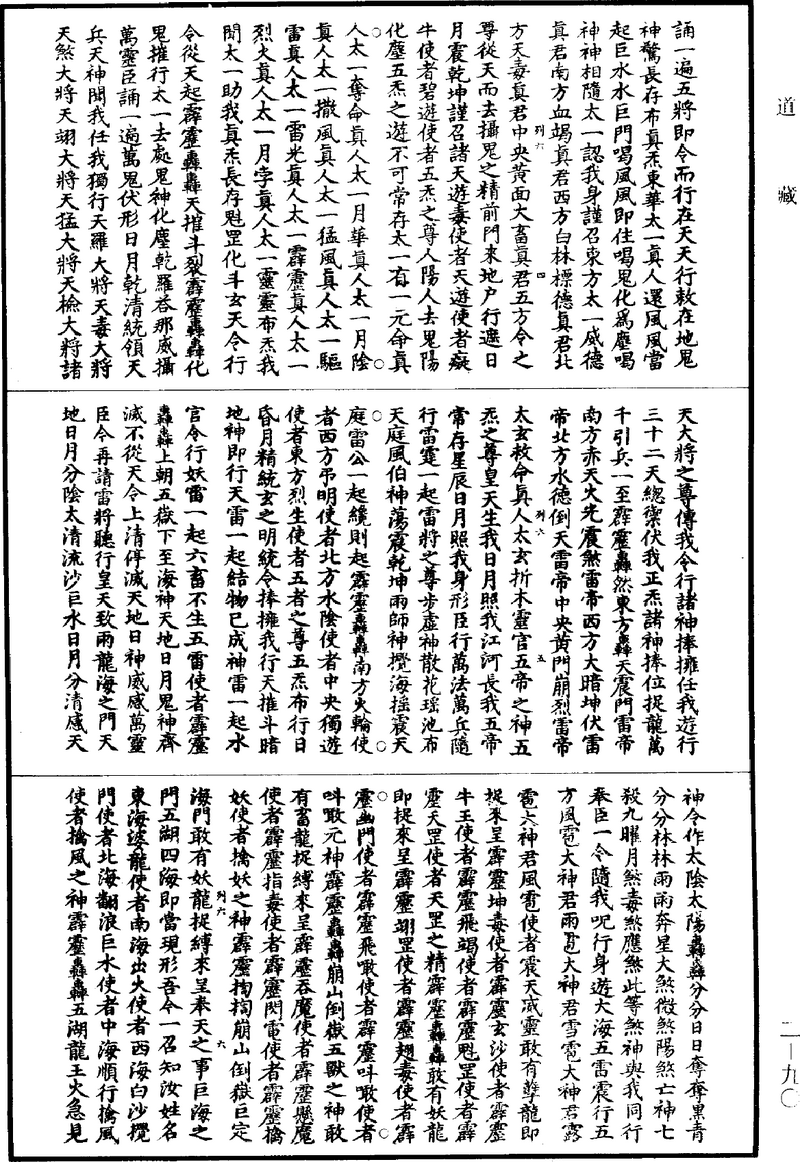 道藏
誦一遍五將即令而行在天天行敕在地鬼
神驚長存布真炁東華太一真人還風風當
起巨水水巨門喝風風即住喝鬼化為塵喝
神神相隨太一認我身謹召東方太一威德
真君南方血竭真君西方白林標德真君北
方天毒真君中央黃面大畜真君五方令之
列六 四
尊從天而去攝鬼之精前門來地戶行遮日
月震乾坤謹召諸天遊毒使者天遊使者癡
牛使者碧遊使者五炁之尊人陽人去鬼陽
化塵五炁之遊不可常存太一有一元命真
人太一奪命真人太一月華真人太一月陰
真人太一撒風真人太一猛風真人太一驅
雷真人太一雷光真人太一霹靂真人太一
烈火真人太一月孛真人太一靈靈布炁我
聞太一助我真炁長存魁罡化斗玄天令行
令從天起霹靂轟轟天摧斗裂霹靂轟轟化
鬼摧行太一去處鬼神化塵乾羅答那威攝
萬靈臣誦一遍萬鬼伏形日月乾清統領天
兵天神聞我任我獨行天羅大將天毒大將
天煞大將天翊大將天猛大將天檢大將諸
天大將之尊傳我令行諸神捧擁任我遊行
三十二天總禦伏我正炁諸神捧位捉龍萬
千引兵一至霹靂轟然東方轟天震門雷帝
南方赤天火光震煞雷帝西方大暗坤伏雷
帝北方水德倒天雷帝中央黃門崩烈雷帝
太玄救命真人太玄折木靈官五帝之神五
列六 五
炁之尊皇天生我日月照我江河長我五帝
常存星辰日月照我身形臣行萬法萬兵隨
行雷霆一起雷將之尊步虛神散花瑤池布
天庭風伯神蕩震乾坤雨師神攪海搖震天
庭雷公一起纔則起霹靂轟轟南方火輪使
者西方吊明使者北方水陰使者中央獨遊
使者東方烈生使者五者之尊五炁布行日
昏月精統玄之明統令捧擁我行天摧斗暗
地神即行天雷一起結物已成神雷一起水
官令行妖雷一起六畜不生五雷使者霹靂
轟轟上朝五嶽下至海神天地日月鬼神齊
滅不從天令上清停滅天地日神威感萬靈
臣令再請雷將聽行皇天致雨龍海之門天
地日月分陰太清流沙巨水日月分清感天
神令作太陰太陽轟轟分分日日奪奪黑青
分分林林雨雨奔星大煞微煞陽煞亡神七
殺九曜月煞毒煞應煞此等煞神與我同行
奉臣一令隨我呪行身遊大海五雷震行五
方風雹大神君雨雹大神君雪雹大神君露
雹大神君風雹使者震天威靈敢有孽龍即
捉來呈霹靂坤毒使者霹靂玄沙使者霹靂
牛王使者霹靂飛竭使者霹靂魁罡使者霹
靂天罡使者天罡之精霹靂轟轟敢有妖龍
即捉來呈霹靂翊罡使者霹靂翅毒使者霹
靂幽門使者霹靂飛噉使者霹靂叫噉使者
叫噉元神霹靂轟轟崩山倒嶽五獸之神敢
有畜龍捉縛來呈霹靂吞魔使者霹靂懸魔
使者霹靂指毒使者霹靂閃雷使者霹靂擒
妖使者擒妖之神霹靂掏掏崩山倒嶽巨定
列六 六
海門敢有妖龍捉縛來呈奉天之事巨海之
門五湖四海即當現形吾令一召知汝姓名
東海波龍使者南海出火使者西海白沙攪
門使者北海翻浪巨水使者中海順行擒風
使者擒風之神霹靂轟轟五湖龍王火急見
二—九〇